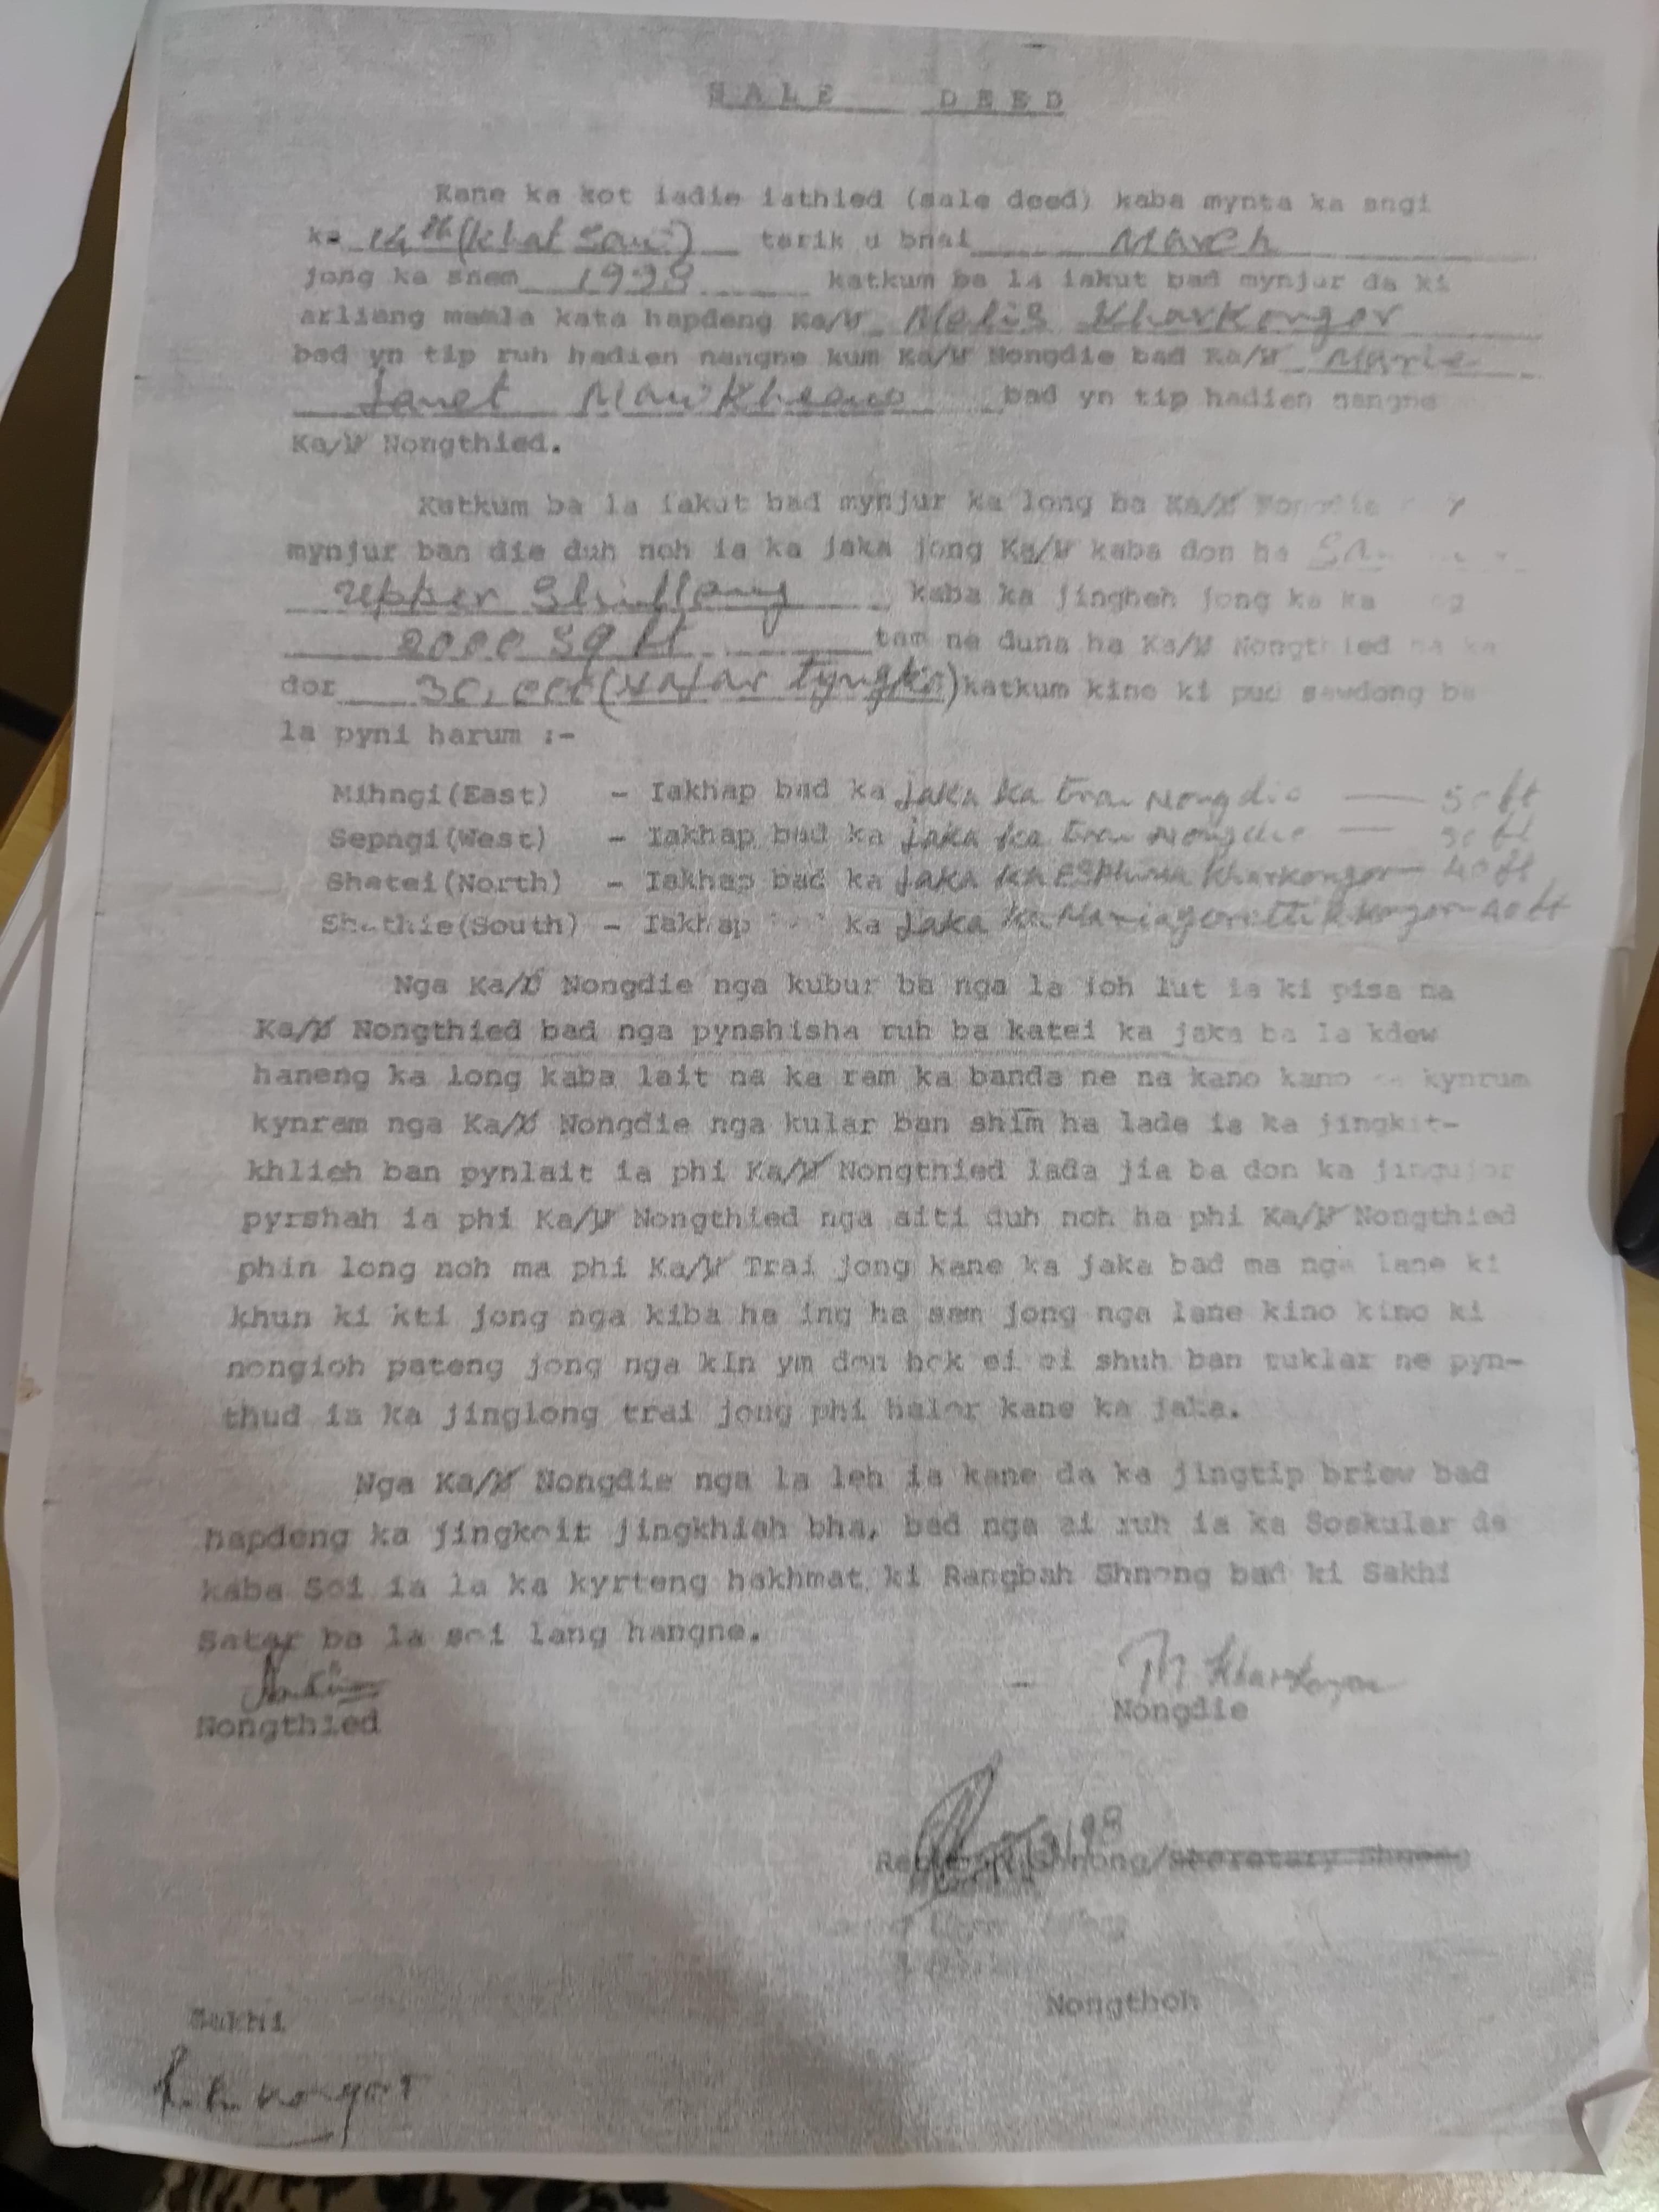 SALE DEED
Kane ka kot iadie iathied (sale deed) kaba mynta ka sngi
ka 14th (khat saw) tarik u bnai March
jong ka snem 1998 katkum ba la iakut bad mynjur da ki
arliang mamla kata hapdeng Ka/U Melis Kharkongor
bad yn tip ruh hadien nangne kum Ka/U Nongdie bad Ka/U Marie
Janet Mawkhiew bad yn tip hadien nangne
Ka/U Nongthied.
Katkum ba la iakut bad mynjur ka long ba Ka/U Nongdie
mynjur ban die duh noh ia ka jaka jong Ka/U kaba don ha
Upper Shillong kaba ka jingheh jong ka ka
2000 Sq ft tam ne duna ha Ka/U Nongthied na ka
dor 30,000 (hajar tyngka) katkum kine ki pud sawdong ba
la pyni harum :-
Mihngi(East) - Iakhap bad ka jaka ka trai Nongdie — 50 ft
Sepngi(West) - Iakhap bad ka jaka ka trai Nongdie — 50 ft
Shatei(North) - Iakhap bad ka jaka ka Kharkongor — 40 ft
Shathie(South) - Iakhap ka jaka ka 40 ft
Nga Ka/U Nongdie nga kubur ba nga la ioh lut ia ki pisa na
Ka/U Nongthied bad nga pynshisha ruh ba katei ka jaka ba la kdew
haneng ka long kaba lait na ka ram ka banda ne na kano kano kynrum
kynram nga Ka/U Nongdie nga kular ban shim ha lade ia ka jingkit-
khlieh ban pynlait ia phi Ka/U Nongthied lada jia ba don ka jingujor
pyrshah ia phi Ka/U Nongthied nga aiti duh noh ha phi Ka/U Nongthied
phin long noh ma phi Ka/U Trai jong kane ka jaka bad ma nga lane ki
khun ki kti jong nga kiba ha ing ha sem jong nga lane kino kino ki
nongioh pateng jong nga kin ym don hok ei ei shuh ban tuklar ne pyn-
thud ia ka jinglong trai jong phi halor kane ka jaka.
Nga Ka/U Nongdie nga la leh ia kane da ka jingtip briew bad
hapdeng ka jingkoit jingkhiah bha, bad nga ai ruh ia ka Soskular da
kaba Soi ia la ka kyrteng hakhmat ki Rangbah Shnong bad ki Sakhi
Satar ba la soi lang hangne.
M Kharkongor
Nongthied Nongdie
Shnong/Secretary Shnong
Nongthoh
Sakhi